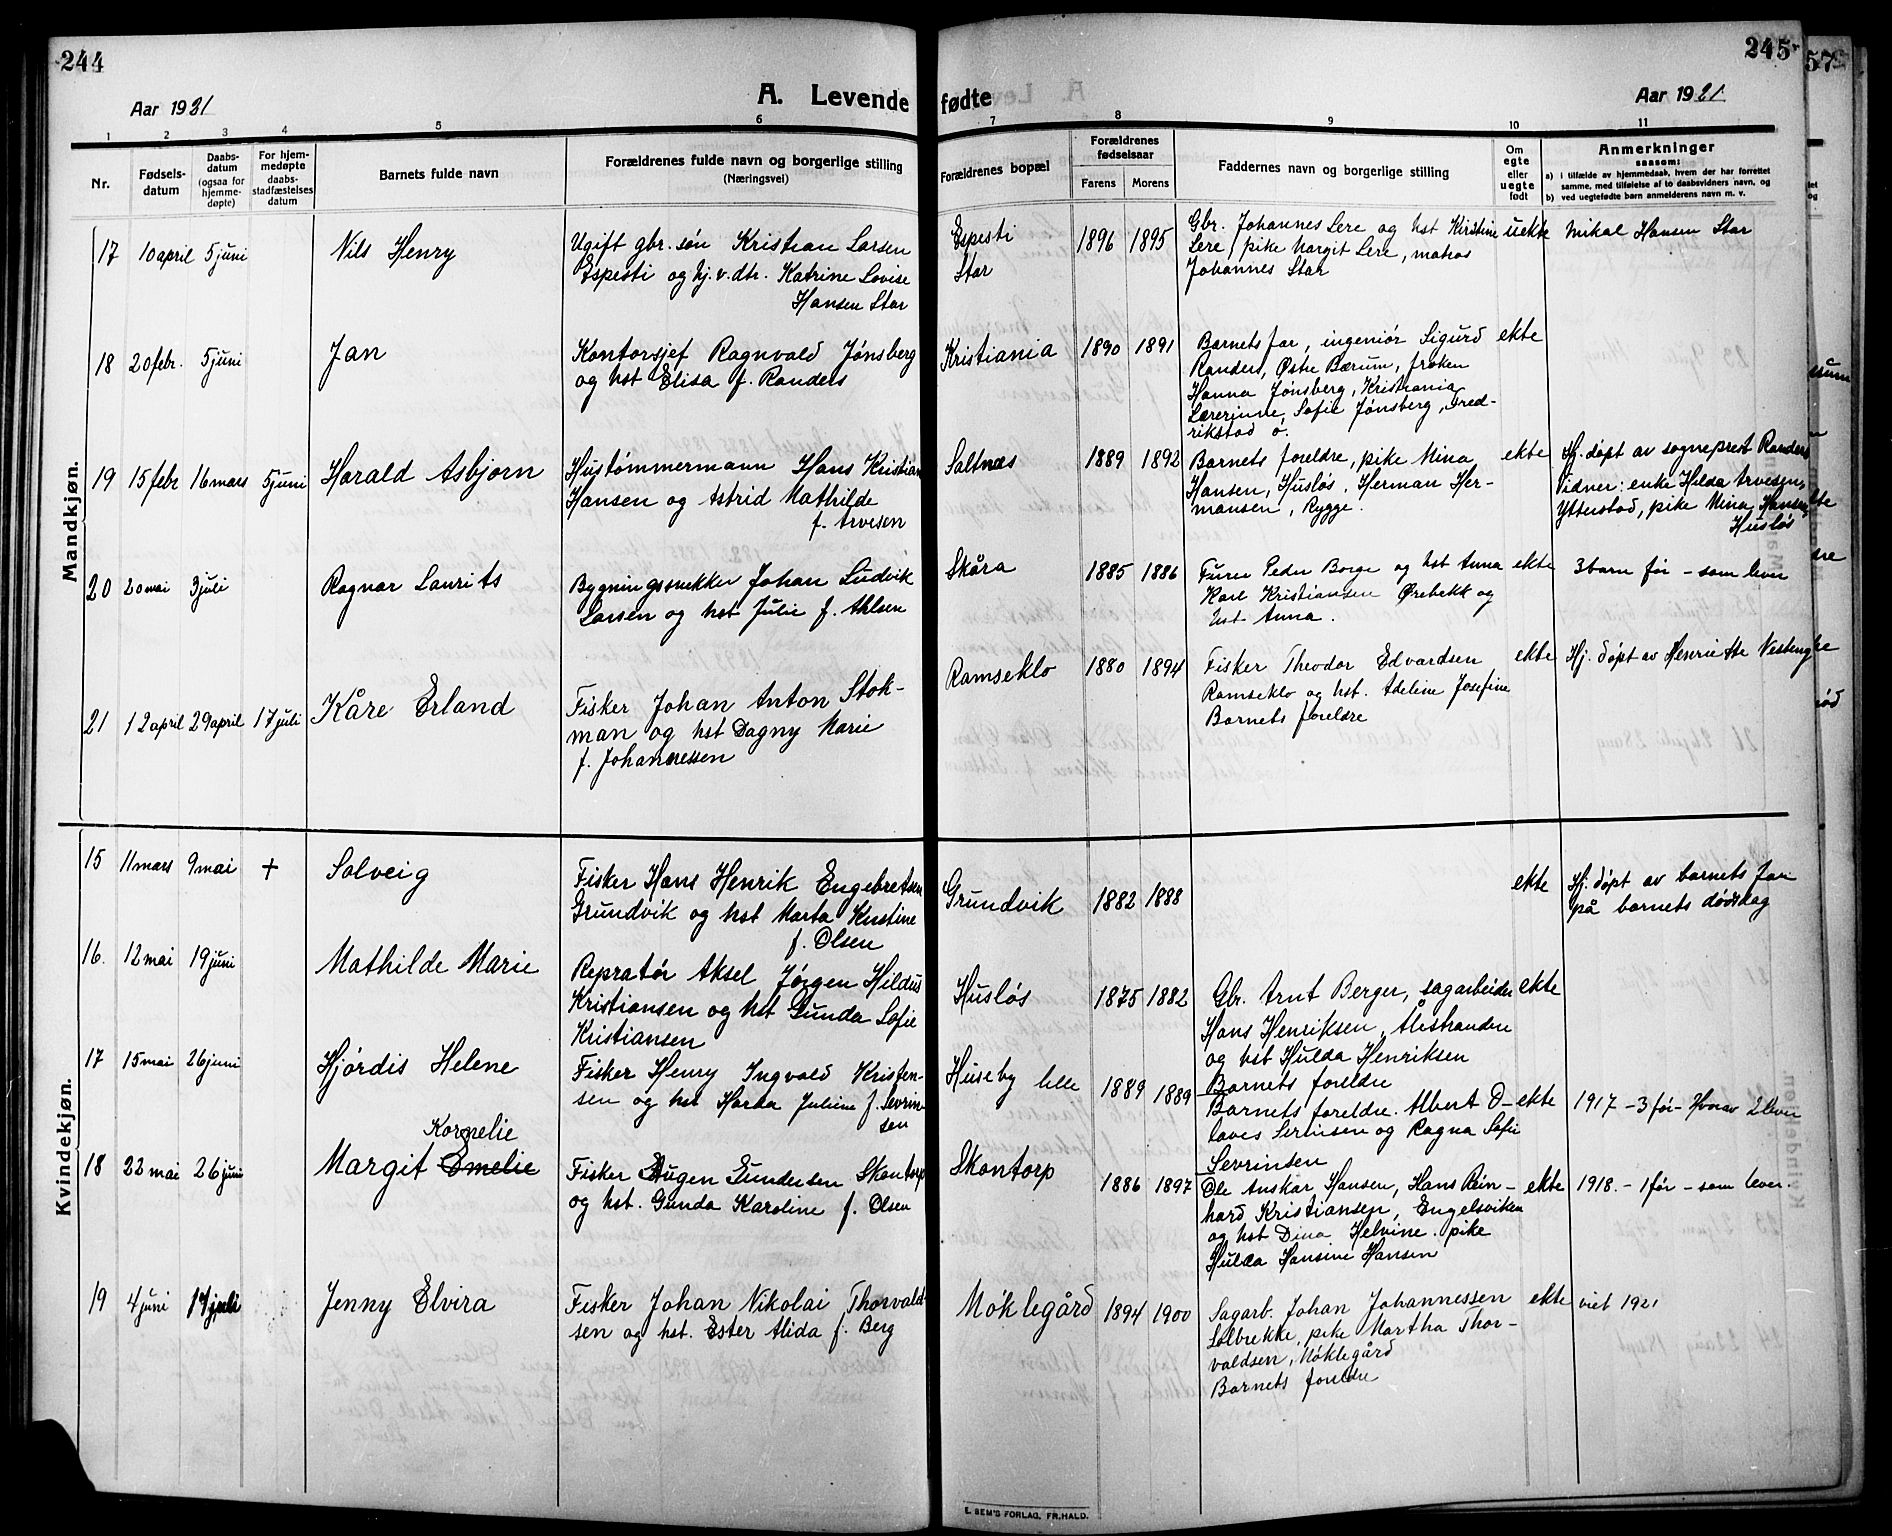 244
245
57
Aar 1921
A. Levende fødte
Aar 1921
1 2 3 4 5 6 7 8 9 10 11
Nr.
Fødsels-
datum
Daabs-
datum
(ogsaa for
hjemme-
døpte)
For hjem-
medøpte
daabs-
stadfæstelses
datum
Barnets fulde navn
Forældrenes fulde navn og borgerlige stilling
(Næringsvei)
Forældrenes bopæl
Forældrenes
fødselsaar
Farens
Morens
Faddernes navn og borgerlige stilling
Om
egte
eller
uegte
født
Anmerkninger
saasom:
a) i tilfælde av hjemmedaab, hvem der har forrettet
samme, med tilføielse af to daabsvidners navn, og
b) ved uegtefødte børn anmelderens navn m. v.
Mandkjøn.
17 10 april 5 juni
Nils Henry
Ugift gbr. søn Kristian Larsen
Espesti og hj. v. dtr. Katrine Lovise
Hansen Stor
Espesti
Stor
1896 1895
Gbr. Johannes Lere og hst Kirstine
Lere, pike Margit Lere, matros
Johannes Stor
uekte
Mikal Hansen Stor
18 20 febr. 5 juni
Jan
Kontorsjef Ragnvald Jønsberg
og hst Elisa f. Randers
Kristiania
1890 1891
Barnets far, ingeniør Sigurd
Randers, Østre Bærum, frøken
Hanna Jønsberg, Kristiania
Lærerinne, Sofie Jønsberg, Fred-
rikstad ø.
ekte
19 15 febr 16 mars 5 juni
Harald Asbjørn
Hustømmermann Hans Kristian
Hansen og Astrid Mathilde
f. Arvesen
Saltnæs
1889 1892
Barnets foreldre, pike Mina
Hansen, Husløs, Herman Her-
mansen, Rygge.
ekte
Hj. døpt av sogneprest Randers
Vidner: enke Hilda Arvesen,
Ytterstad, pike Mina Hansen,
Husløs
20 20 mai 3 juli
Ragnar Laurits
Bygningssnekker Johan Ludvik
Larsen og hst Julie f. Ahlsen
Skåra
1885 1886
Furer Peder Borge og hst Anna
Karl Kristiansen Ørebekk og
hst Anna.
ekte
3 barn før – som lever
21 12 april 29 april 17 juli
Kåre Erland
Fisker Johan Anton Stok-
man og hst Dagny Marie
f. Johannessen
Ramseklo
1880 1894
Fisker Theodor Edvardsen
Ramseklo og hst. Adeline Josefine
Barnets foreldre
ekte
Hj. døpt av Henriette Vesteng
Kvindekjøn.
15 11 mars 9 mai +
Solveig
Fisker Hans Henrik Engebretsen
Grundvik og hst Marta Kirstine
f. Olsen
Grundvik
1882 1888
ekte
Hj. døpt av barnets far
på barnets dødsdag
16. 12 mai 19 juni
Mathilde Marie
Repratør Aksel Jørgen Hildus
Kristiansen og hst Gunda Sofie
Kristiansen
Husløs
1875 1882
Gbr. Arnt Berger, sagarbeider
Hans Henriksen, Ålestranden
og hst Hulda Henriksen
Barnets foreldre
ekte
17 15 mai 26 juni
Hjørdis Helene
Fisker Henry Ingvald Kristen-
sen og hst Harda Juliem f. Sevrin
sen
Huseby lille
1889 1889
Barnets foreldre. Albert O-
laves Sevrinsen og Ragna Sofie
Sevrinsen
ekte
1917 – 3 før – Hvorav 2 lever
18 22 mai 26 juni
Kornelie
Margit Emelie
Fisker Eugen Gundersen Skontorp
og hst. Gunda Karoline f. Olsen
Skontorp
1886 1897
Ole Anskar Hansen, Hans Rein-
hard Kristiansen, Engelsviken
og hst Dina Helvine. pike
Hulda Hansine Hansen
ekte
1918. – 1 før – som lever.
19 4 juni 17 juli
Jenny Elvira
Fisker Johan Nikolai Thorvald
sen og hst. Ester Alida f. Berg
Møklegård
1894 1900
Sagarb. Johan Johannessen
Solbrekke, pike Martha Thor-
valdsen, Møklegård
Barnets foreldre
ekte
viet 1921
E. SEM'S FORLAG, FR.HALD.